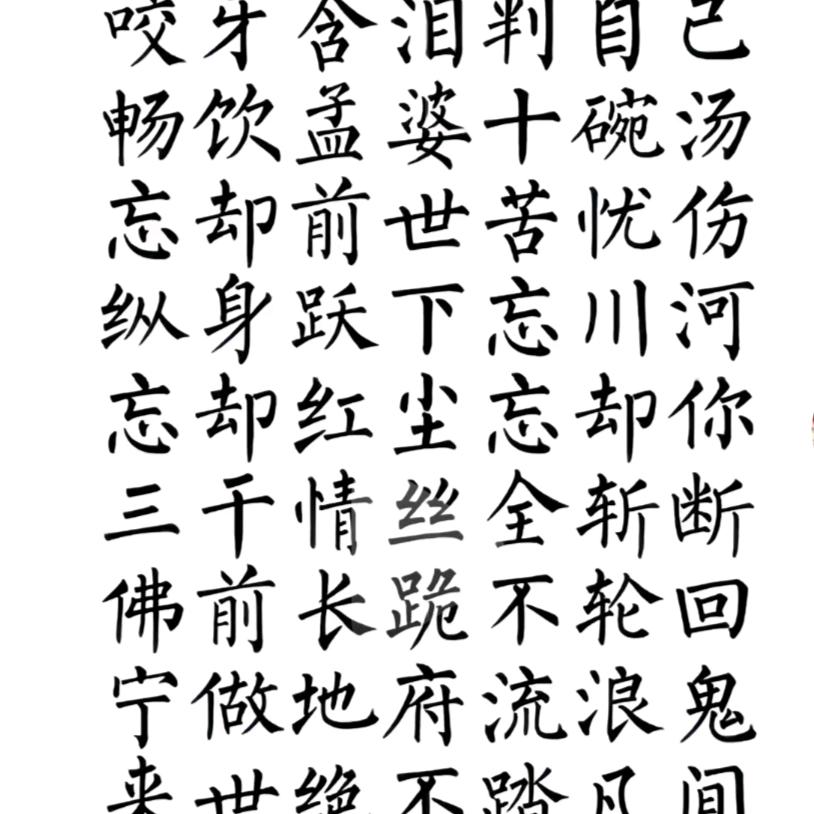 咬牙含泪判自己
畅饮孟婆十碗汤
忘却前世苦忧伤
纵身跃下忘川河
忘却红尘忘却你
三千情丝全斩断
佛前长跪不轮回
宁做地府流浪鬼
来世绝不踏凡间